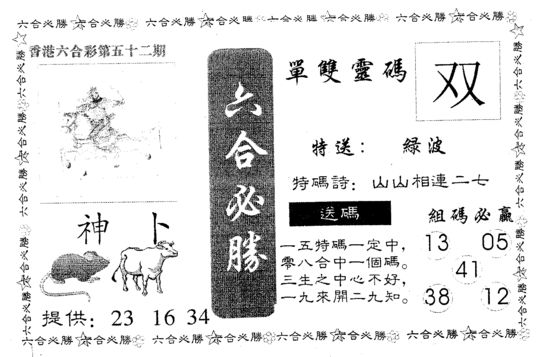 六合必勝☆六合必勝☆六合必勝☆六合必勝☆六合必勝☆六合必勝☆六合必勝
香港六合彩第五十二期
神卜
提供: 23 16 34
六合必勝
單雙靈碼
双
特送: 綠波
特碼詩: 山山相連二七
送碼
一五特碼一定中,
零八合中一個碼。
三生之中心不好,
一九來開二九知。
組碼必贏
13 05
41
38 12
六合必勝☆六合必勝☆六合必勝☆六合必勝☆六合必勝☆六合必勝☆六合必勝